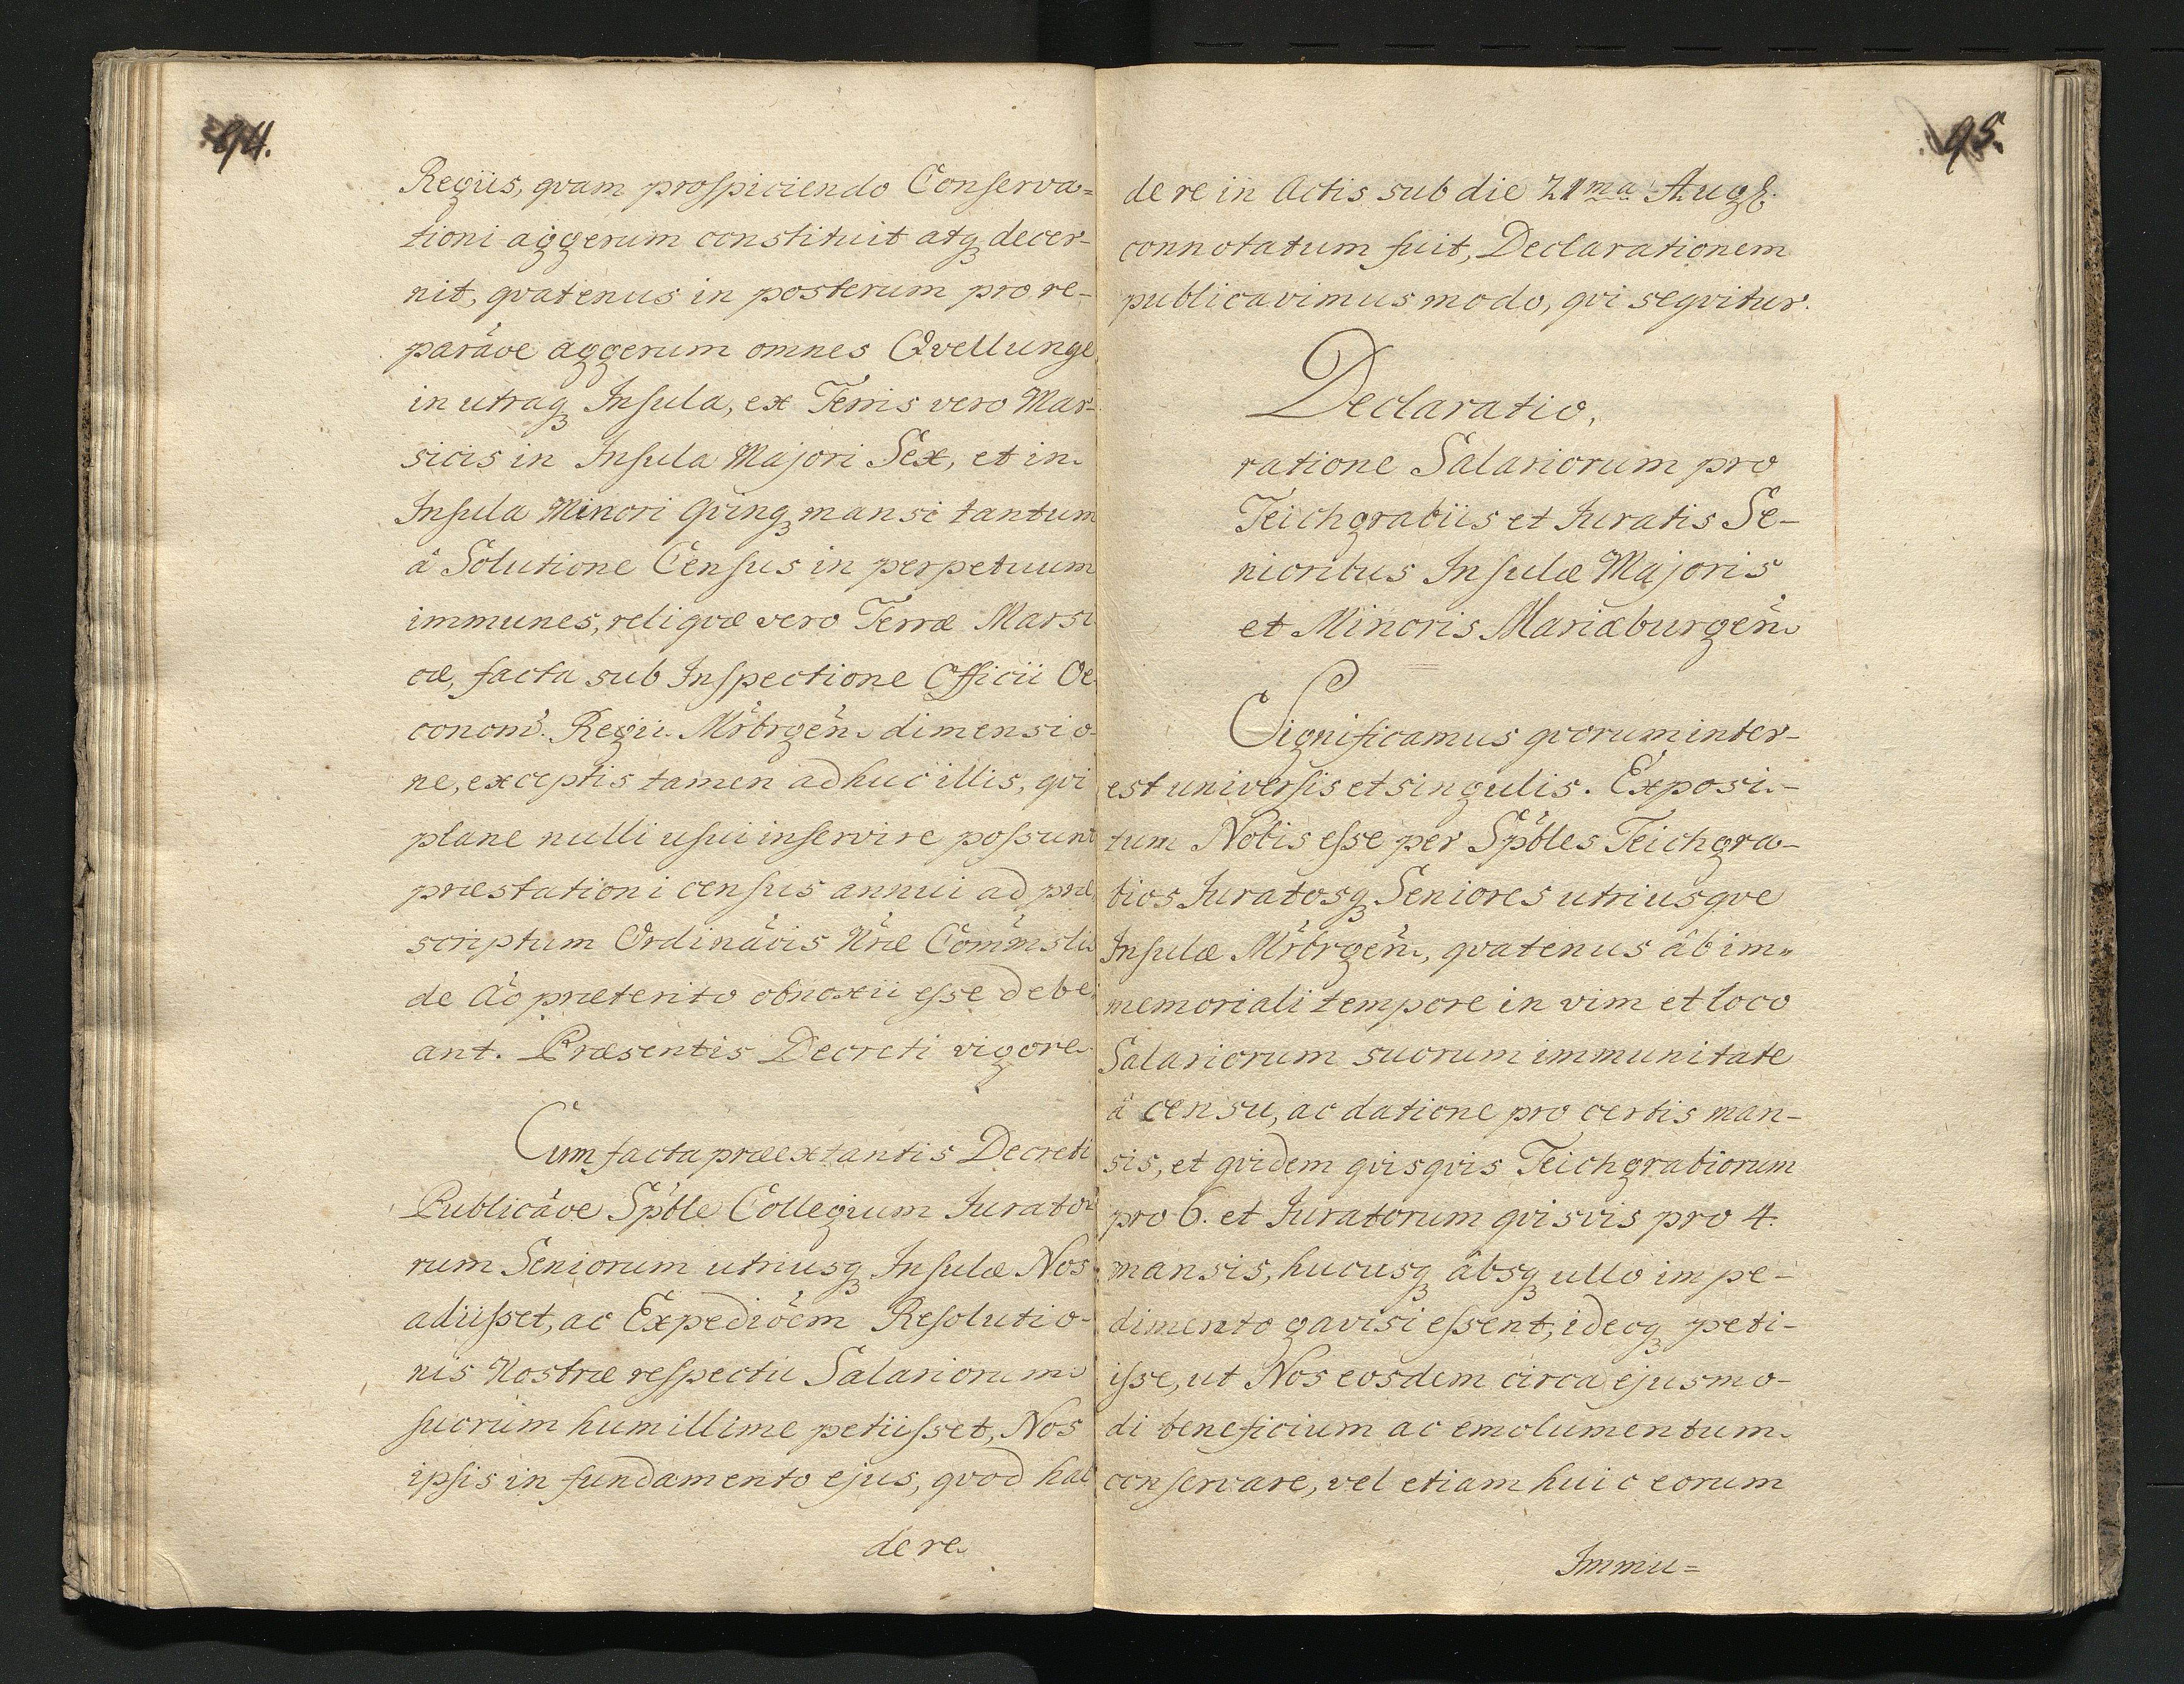 94.
Regiis, qvam prospiciendo Conserva=
tioni aggerum constituit atq₃ decer-
nit, qvatenus in posterum pro re-
parãoe aggerum omnes Qvellunge
in utraq₃ Insula, ex Terris vero Mar-
sicis in Insula Majori Sex, et in
Insula Minori Qvinq₃ mansi tantum
â Solutione Census in perpetuum
immunes, reliqvæ vero Terræ Marsi
cæ, facta sub Inspectione Officii Oe
conom̃. Regii Mrbrgen̄ dimensio-
ne, exceptis tamen adhuc illis, qvi
plane nulli usui inservire possunt
præstationi census annui ad præ
scriptum Ordinãois Nræ Com̃mslis
de Aõ præterito obnoxii esse debe
ant. Præsentis Decreti vigore
Cum facta præextantis Decreti
Publicãoe Spble Collegium Jurato
rum Seniorum utriusq₃ Insulæ Nos
adiisset, ac Expediõem Resolutio-
nis Nostræ respectu Salariorum
suorum humillime petiisset, Nos
ipsis in fundamento ejus, qvod hac
de re
95.
de re in Actis sub die 21ma Augs.
connotatum fuit, Declarationem
publicavimus modo, qvi seqvitur.
Declaratio,
ratione Salariorum pro
Teichgrabiis et Juratis Se-
nioribus Insulæ Majoris
et Minoris Mariæburgen̄
Significamus qvorum inter-
est universis et singulis. Exposi-
tum Nobis esse per Spbles Teichgra-
bios Juratosq₃ Seniores utriusqve
Insulæ Mrbrgen̄, qvatenus âb im-
memoriali tempore in vim et loco
Salariorum suorum immunitate
â censu, ac datione pro certis man-
sis, et qvidem qvisqvis Teichgrabiorum
pro 6. et Juratorum qvisvis pro 4.
mansis, hucusq₃ âbsq₃ ullo impe-
dimento gavisi essent, ideoq₃ peti-
isse, ut Nos eosdem circa ejusmo-
di beneficium ac emolumentum
conservare, vel etiam huic eorum
Immu=